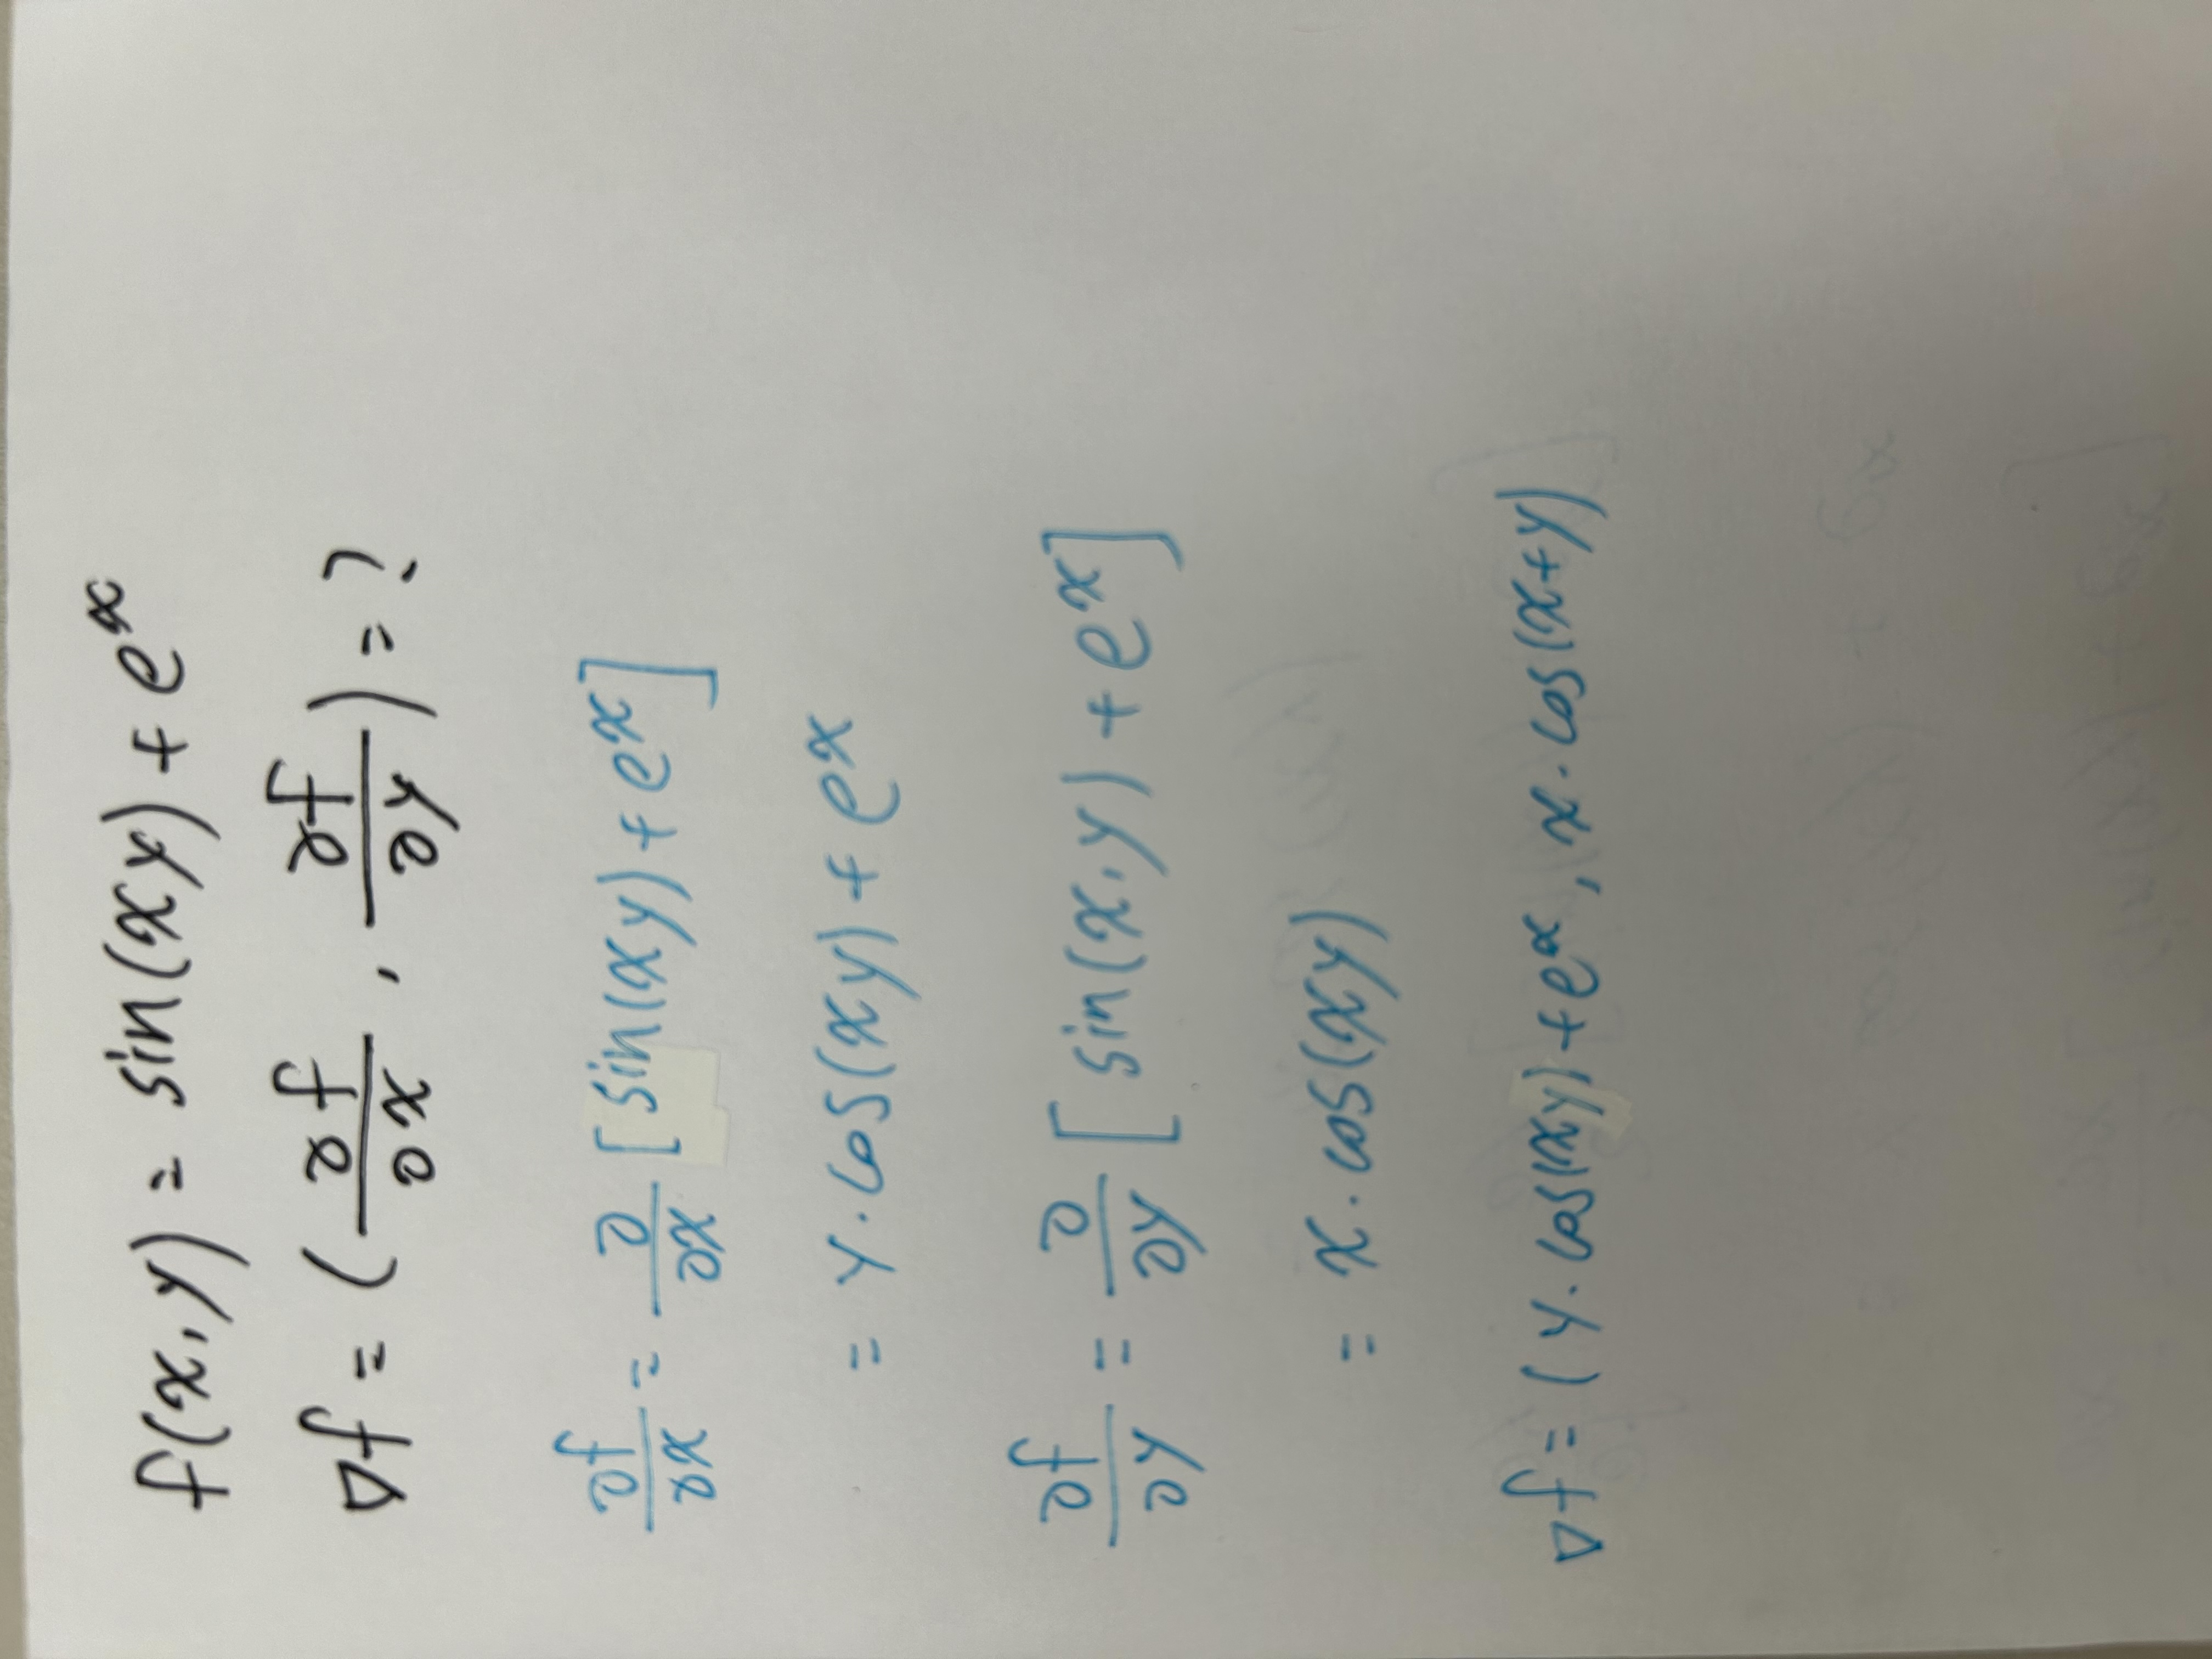 f(x,y) = sin(xy) + e^x
∇f = (∂f/∂x , ∂f/∂y) = ?
∂f/∂x = ∂/∂x [sin(xy) + e^x]
= y·cos(xy) + e^x
∂f/∂y = ∂/∂y [sin(x,y) + e^x]
= x·cos(xy)
∇f = (y·cos(xy) + e^x, x·cos(x+y)